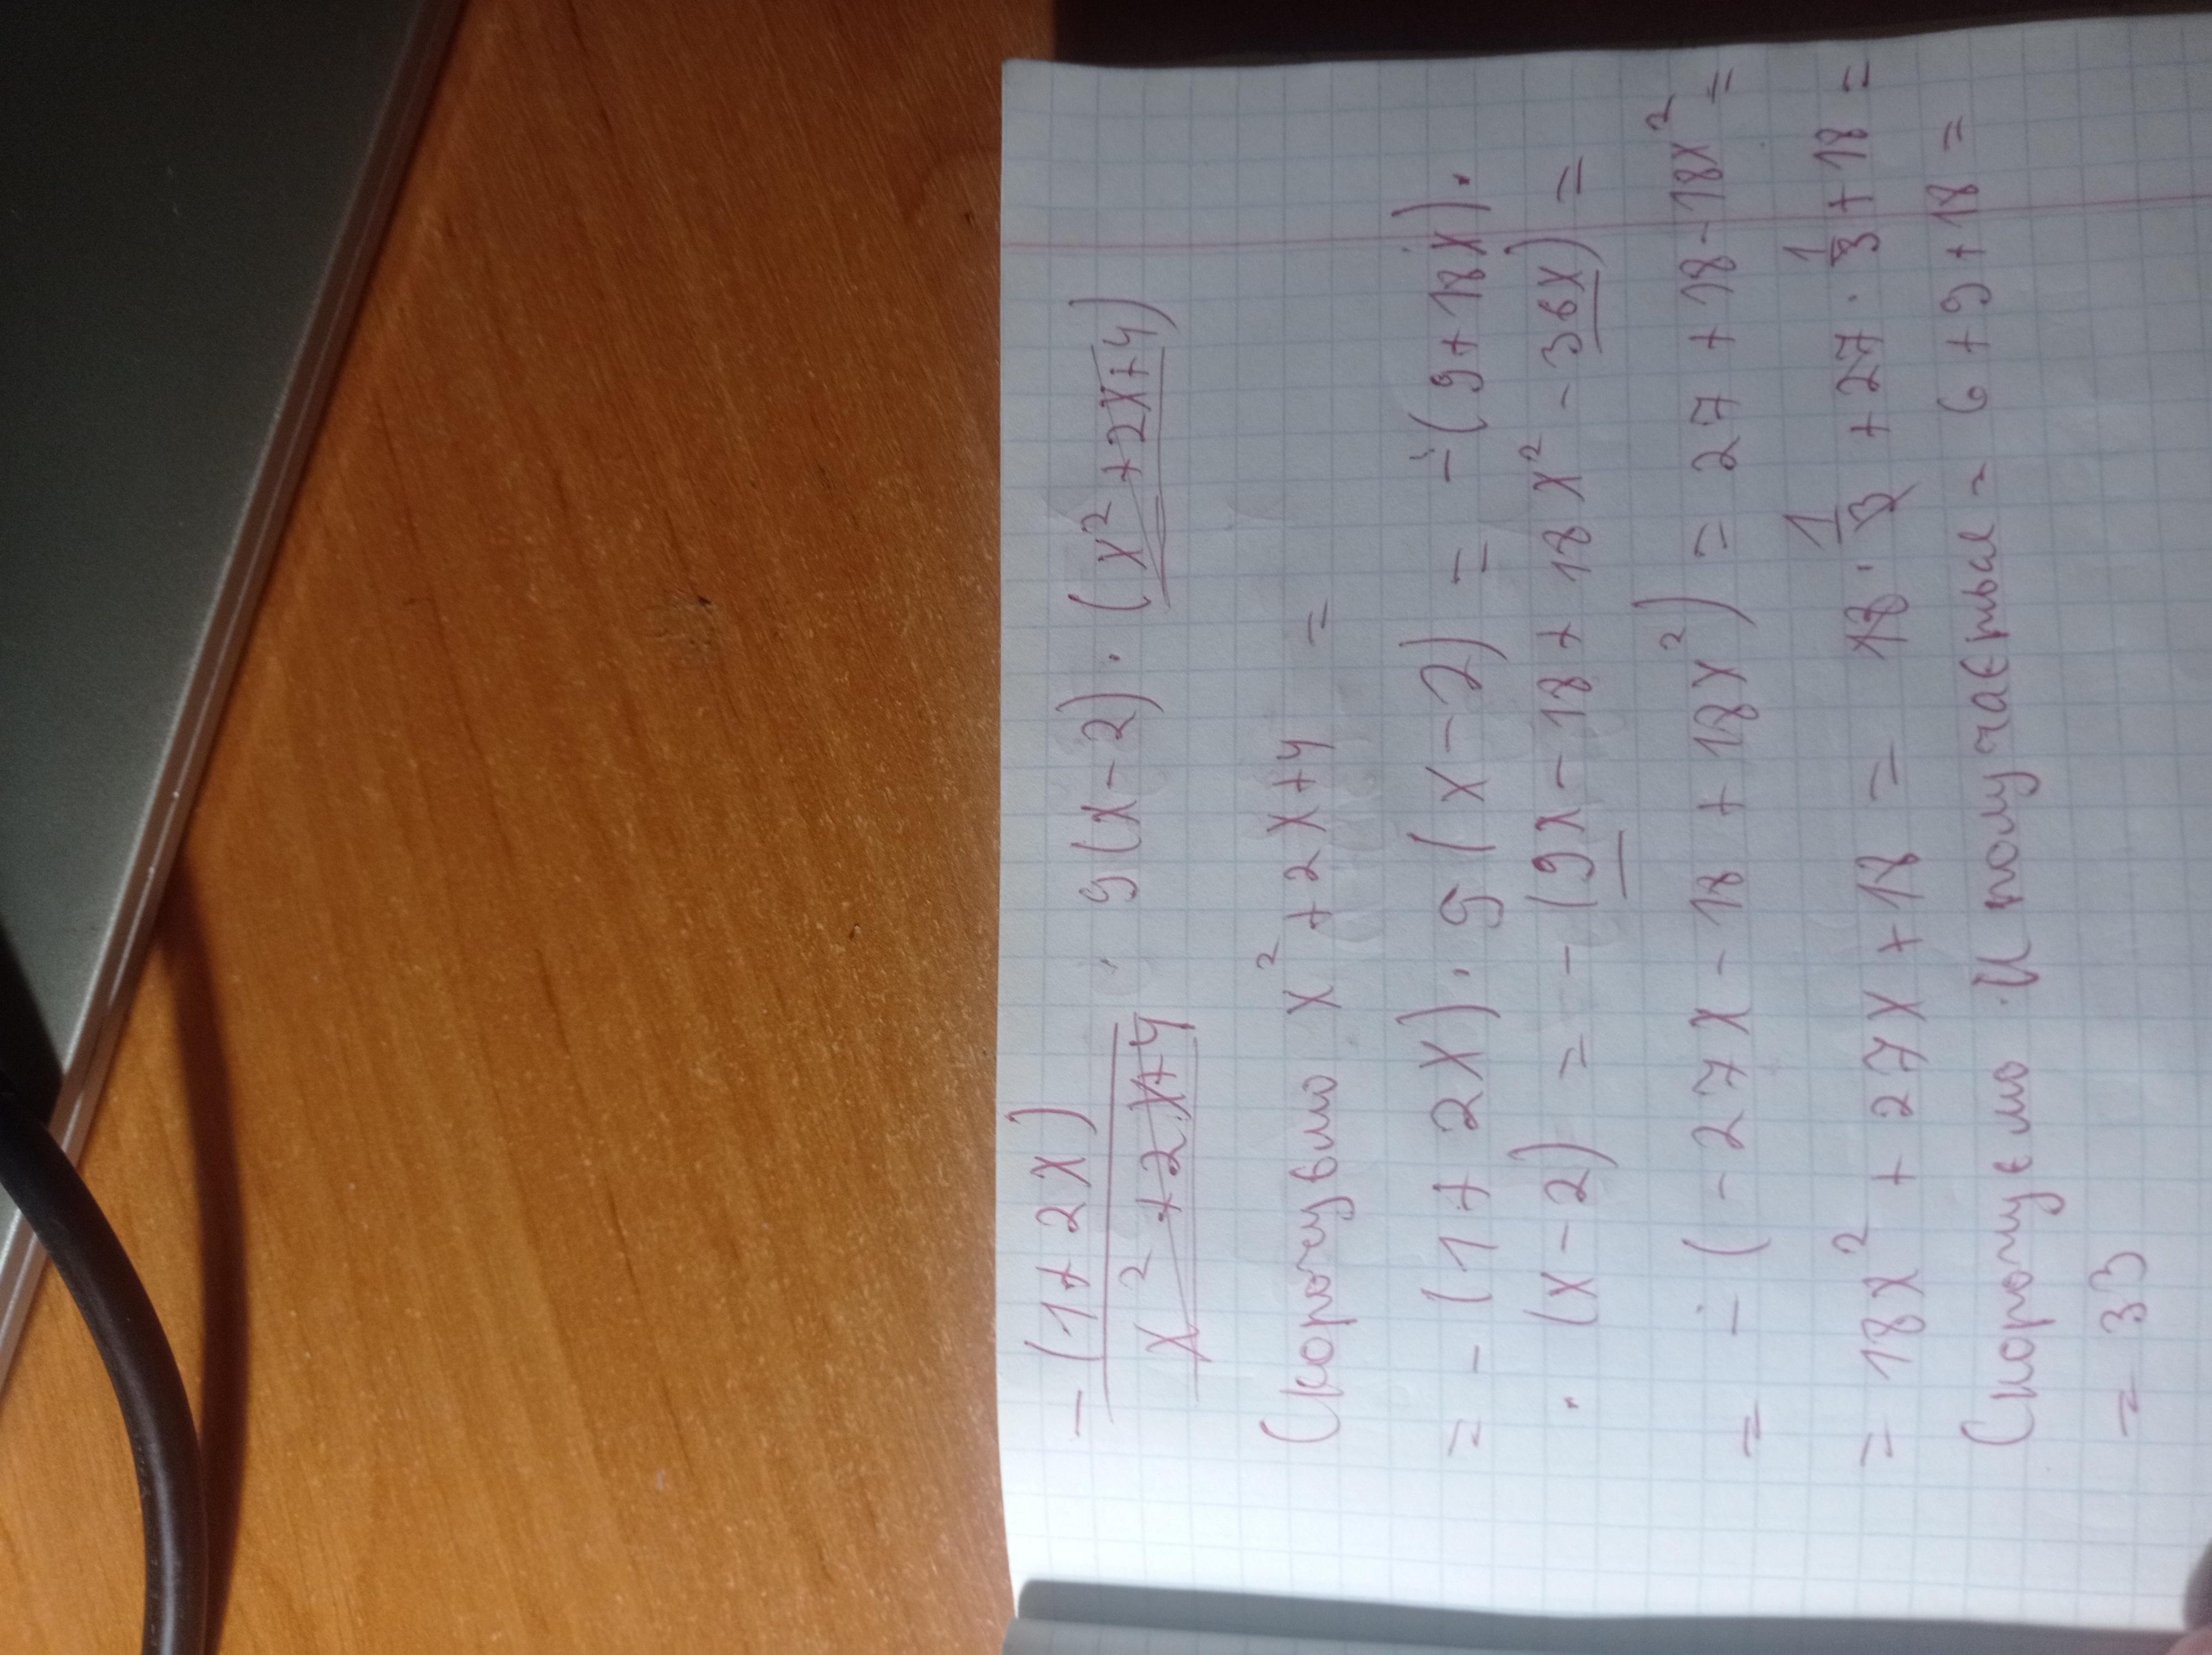 -(1+2x)/(x²+2x+4) · 9(x-2) · (x²+2x+4)
Скорочуємо x²+2x+4 =
= -(1+2x) · 9(x-2) = -(9+18x) ·
· (x-2) = -(9x-18+18x²-36x) =
= -(-27x-18+18x²) = 27+18-18x² =
= 18x²+27x+18 = 18 · 1/3 + 27 · 1/3 + 18 =
Скорочуємо і получається = 6+9+18 =
= 33